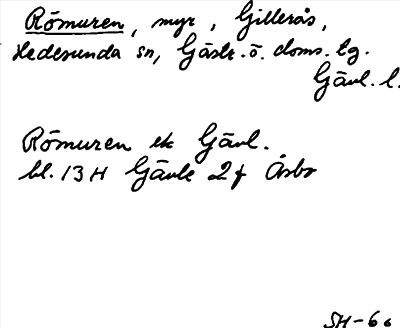 Römuren, myr, Gillerås,
Hedesunda sn, Gästr. ö. doms. tg.
Gävl. l.
Römuren ek Gävl.
bl. 13 H Gävle 2 f Årbo
SH-66